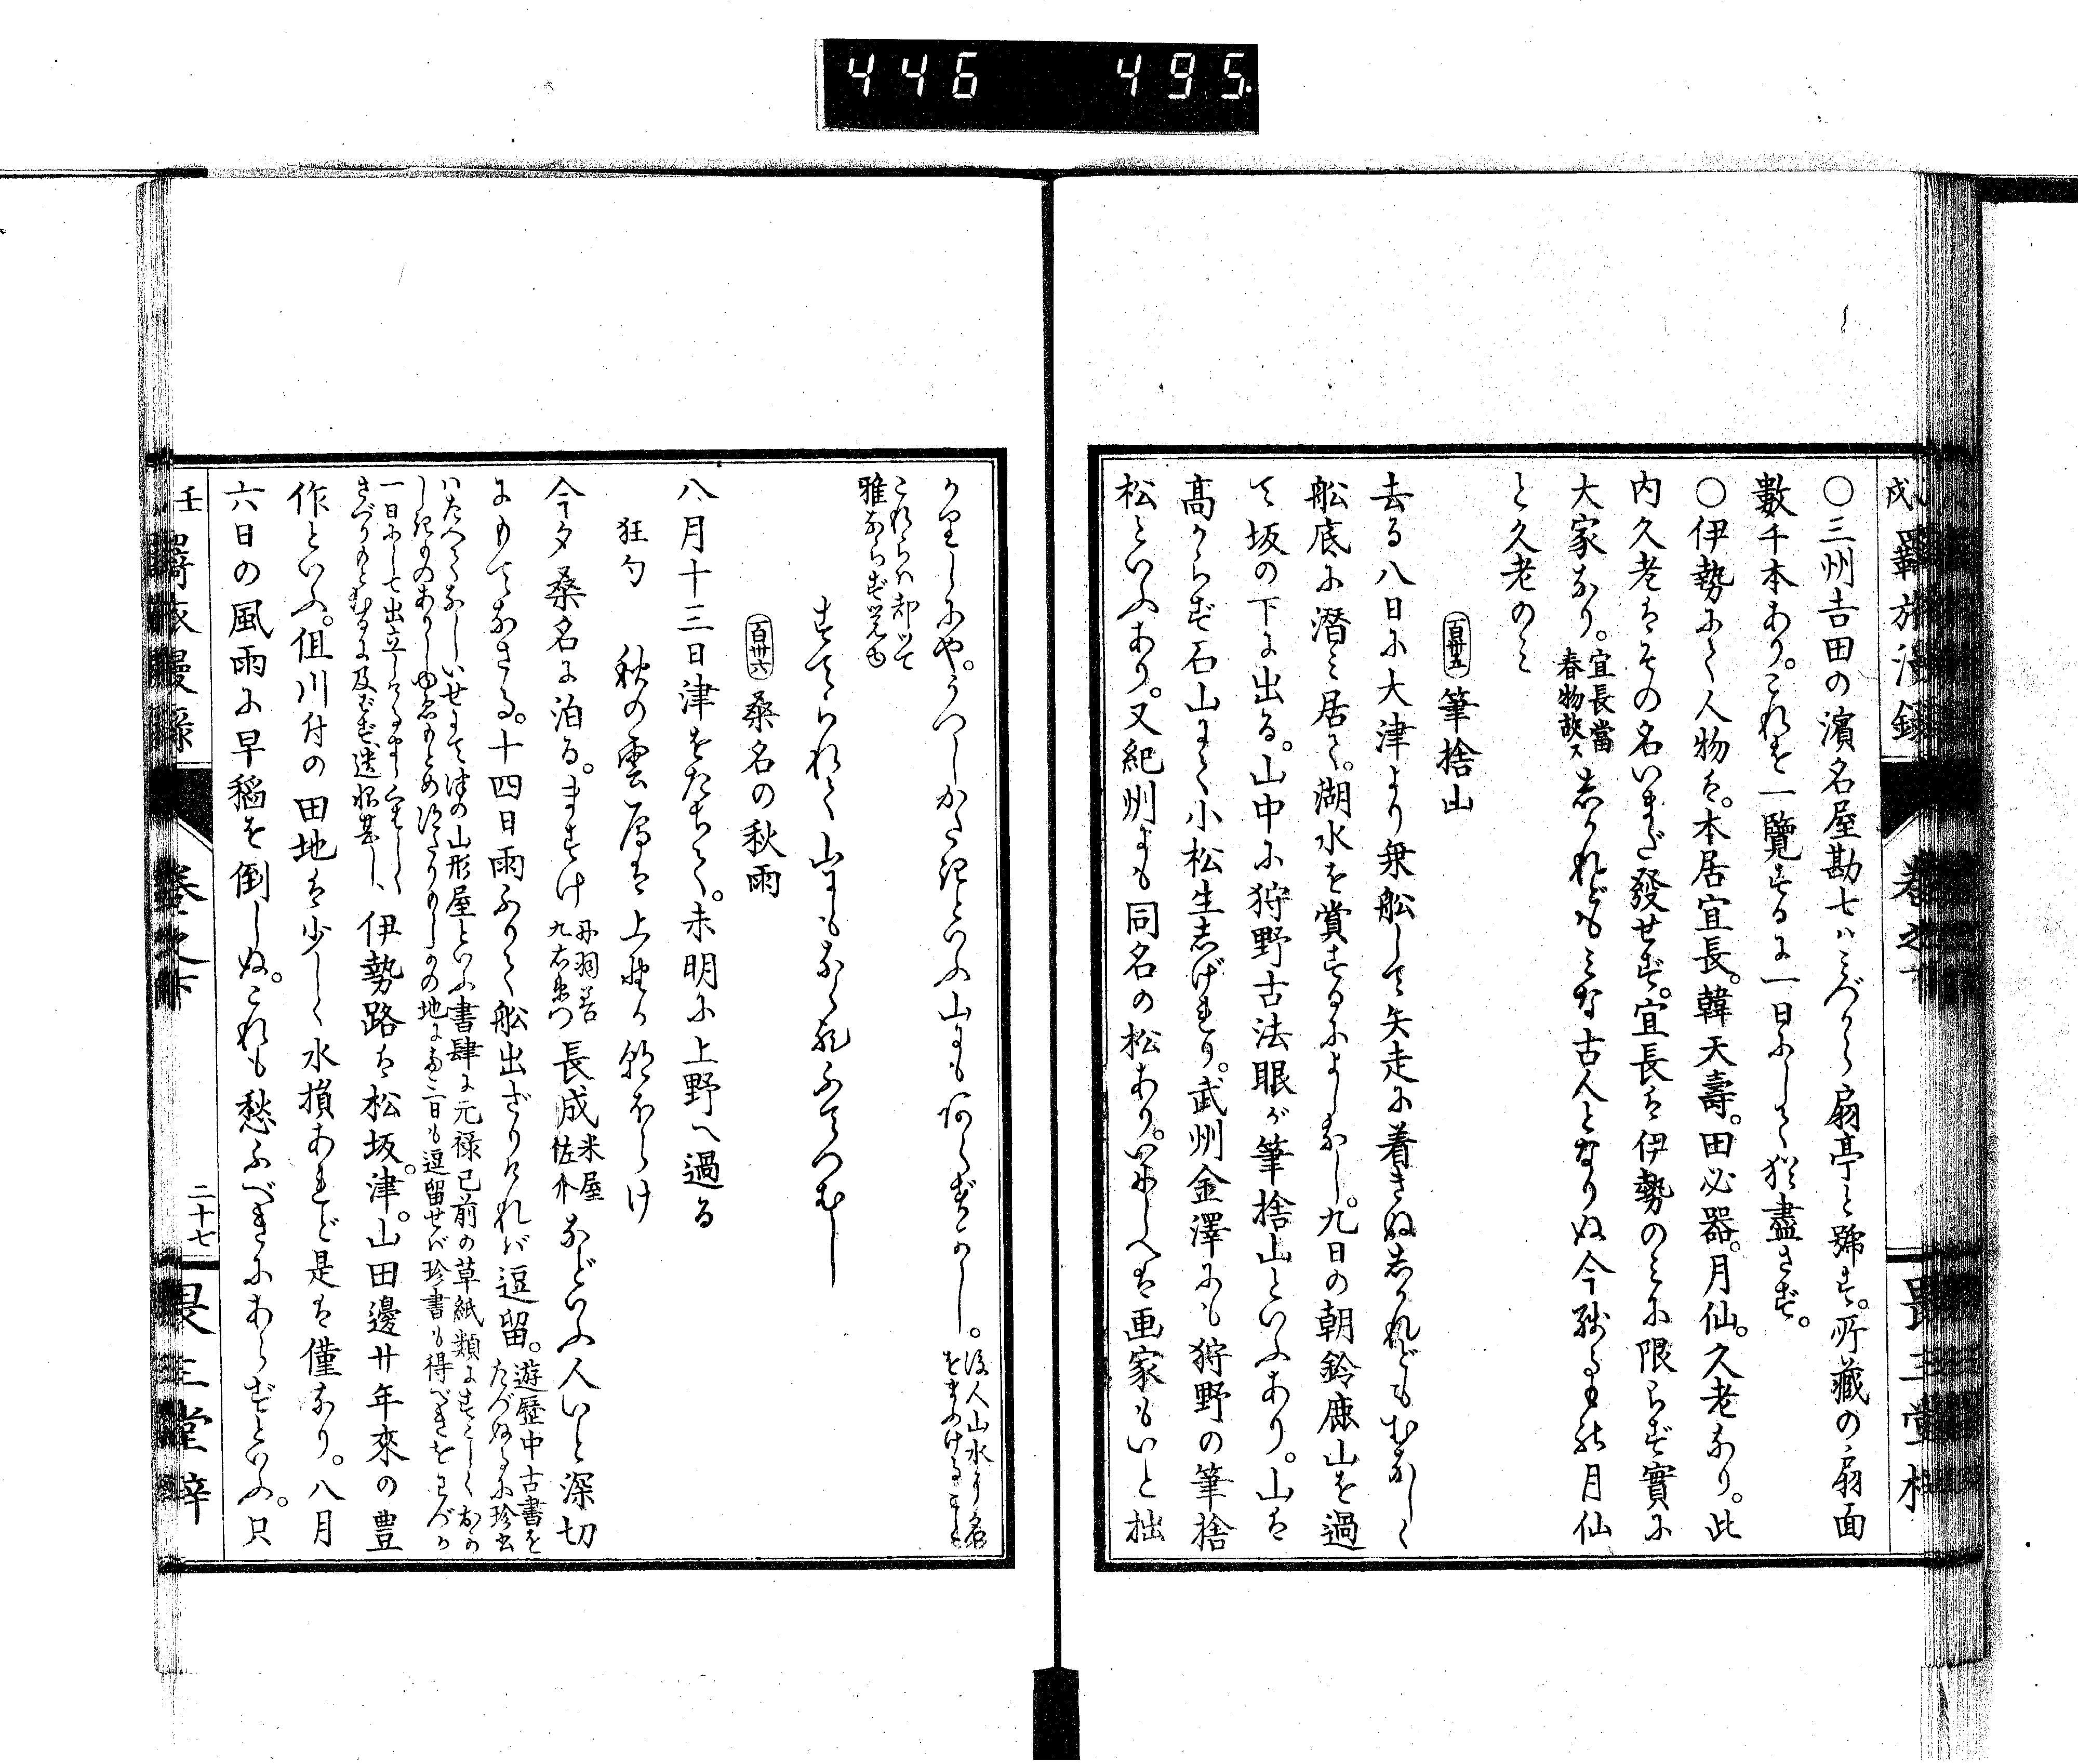 446 495
○三州吉田の濱名屋勘七ハみづから扇亭と號す。所藏の扇面
數千本あり。これを一覽するに一日にして猶盡さず。
○伊勢にて人物は。本居宣長。韓天壽。田必器。月仙。久老なり。此
内久老はその名いまだ發せず。宣長は伊勢のみに限らず實に
大家なり。宣長當春物故ス しかれどもみな古人となりぬ今殘るもの月仙
と久老のみ
百卅五 筆捨山
去る八日に大津より乗舩して矢走に着きぬしかれどもむなしく
舩底に潜み居て。湖水を賞するによしなし。九日の朝鈴鹿山を過
て坂の下に出る。山中に狩野古法眼が筆捨山といふあり。山は
高からず石山にて小松生しげれり。武州金澤にも狩野の筆捨
松といふあり。又紀州にも同名の松あり。いにしへは画家もいと拙
かりしにや。うつしがたきといふ山にも あらずかし。後人山水より名をまふけること
これらハ却つて
雅ならず覚ゆ
すてられて山にもなくや ふでつむし
百卅六 桑名の秋雨
八月十三日津をたちて。未明に上野へ過る
狂句 秋の雲厚は上野の 朝ぼらけ
今夕桑名に泊る。ますけ 丹羽善九右衛門 長成 米屋佐介 などいふ人いと深切
にもてなさる。十四日雨ふりて舩出ざりければ逗留。遊歴中古書をたづぬるに珍書
ハたへてなしいせにては津の山形屋といふ書肆に元禄已前の草紙類にすこしくおか
しきものありしゆゑもとめ 此地に両三日も逗留せバ珍書も得べきをわづか
一日にして出立 くはしく
さぐりもとむるに及ばず、遺恨甚し、伊勢路は松坂。津。山田邊廿年來の豊
作といふ。但川付の田地は少しく水損あれど是は僅なり。八月
六日の風雨に早稲を倒しぬ。これも愁ふべきにあらずといふ。只
壬戌羇旅漫録 巻之下 二十七 畏三堂梓